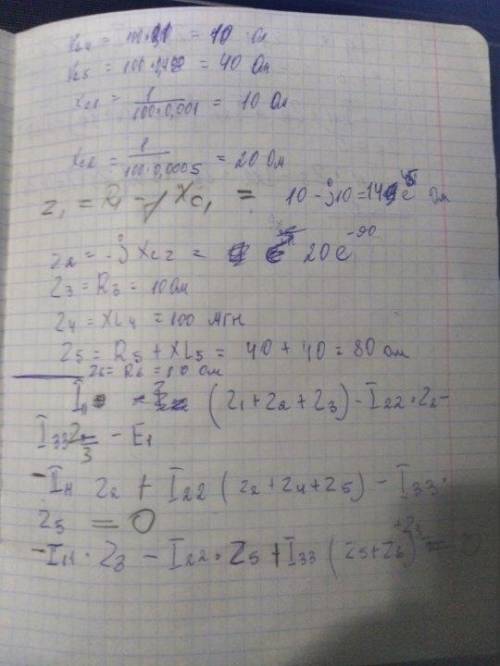 = 10 Ом
= 40 Ом
Xc1 = 1/(100·0,001) = 10 Ом
Xc2 = 1/(100·0,0005) = 20 Ом
Z1 = R1 - jXc1 = 10 - j10 =
Z2 = -jXc2 = 20e^-90
Z3 = R3 = 10 Ом
Z4 = XL4 = 100 мГн
Z5 = R5 + XL5 = 40 + 40 = 80 Ом
Z6 = R6 = 10 Ом
(Z1 + Z2 + Z3) - I22·Z2 -
I33 - E1
-I11 Z2 + I22 (Z2 + Z4 + Z5) - I33·
Z5 = 0
-I11·Z3 - I22·Z5 + I33 (Z5 + Z6 + Z3) = 0